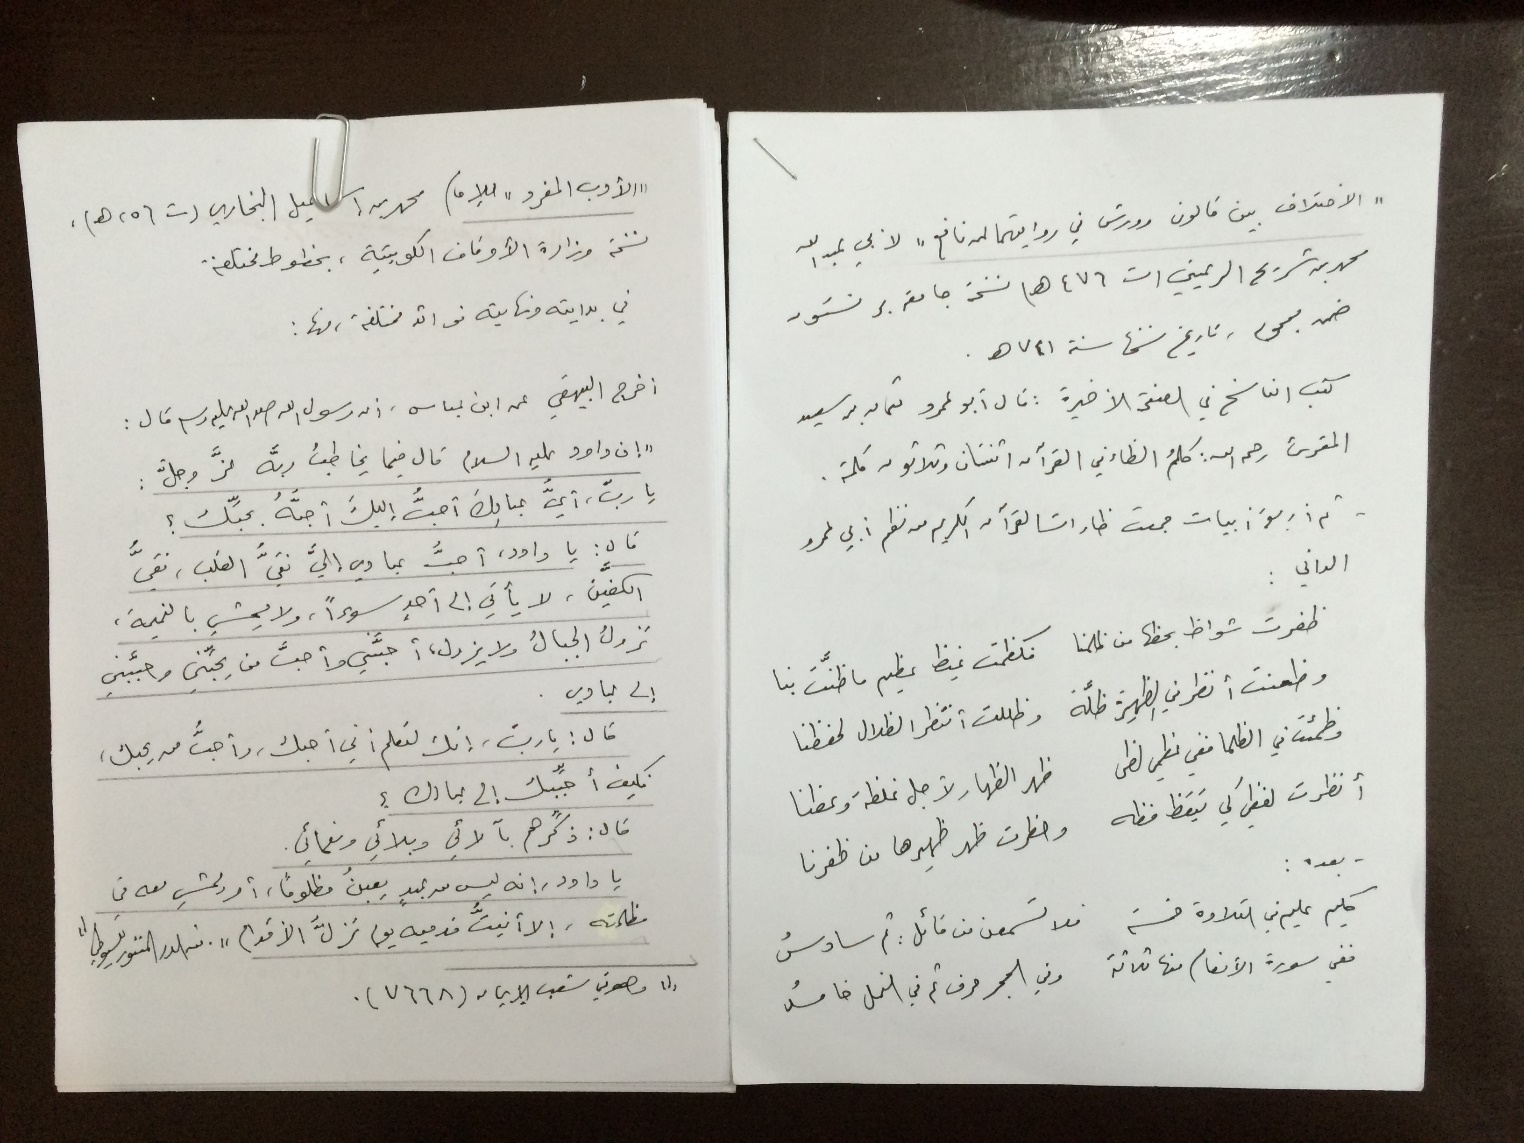 "الاختلاف بين قالون وورش في روايتهما عن نافع" لأبي عبد الله
محمد بن شريح الرعيني (ت ٤٧٦ هـ) نسخة جامعة برنستون
ضمن مجموع، تاريخ نسخها سنة ٧٤١ هـ.
كتب الناسخ في الصفحة الأخيرة: قال أبو عمرو عثمان بن سعيد
المقرئ رحمه الله: كلمُ الظاء في القرآن اثنتان وثلاثون كلمة.
- ثم أربعة أبيات جمعت ظاءات القرآن الكريم من نظم أبي عمرو
الداني:
ظفرت شواظ بحظها من ظلمنا فكظمت غيظ عظيم ما ظنَّت بنا
وظعنت أنظر في الظهيرة ظلَّة وظللت أنتظر الظلال لحفظنا
وظمئت في الظلما ففي عظمي لظى ظهر الظهار لأجل غلظة وعظنا
أنظرت لفظي كي تيقظ فظه وحظرت ظهر ظهيرها من ظفرنا
- بعده:
كليم عليم في التلاوة خمسة فلا تسمعن من قائل: ثم سادسُ
ففي سورة الأنعام منها ثلاثة وفي الحجر حرف ثم في النمل خامسُ
"الأدب المفرد" للإمام محمد بن إسماعيل البخاري (ت ٢٥٦ هـ)،
نسخة وزارة الأوقاف الكويتية، بخطوط مختلفة.
في بدايته ونهايته فوائد مختلفة، منها:
أخرج البيهقي عن ابن عباس، أن رسول الله صلى الله عليه وسلم قال:
"إن داود عليه السلام قال فيما يخاطبُ ربَّه عزَّ وجلَّ:
يا ربّ، أيُّ عبادِكَ أحبُّ إليكَ أحبُّهُ بحبِّكَ؟
قال: يا داود، أحبُّ عبادي إليَّ نقيُّ القلب، نقيُّ
الكفَّينِ، لا يأتي إلى أحدٍ سوءاً، ولا يمشي بالنميمة،
تزولُ الجبالُ ولا يزول، أحبَّني وأحبَّ من يحبُّني وحبَّبني
إلى عبادي.
قال: يا ربّ، إنك لتعلم أني أحبك، وأحبُّ من يحبك،
فكيف أحبِّبكَ إلى عبادك؟
قال: ذكِّرهم بآلائي وبلائي ونعمائي.
يا داود، إنه ليس من عبدٍ يعينُ مظلومًا، أو يمشي معه في
مظلمته، إلا أُثبِّتُ قدميه يوم تزلُّ الأقدام". من الدر المنثور للسيوطي (١)
(١) وهو في شعب الإيمان (٧٦٦٨).